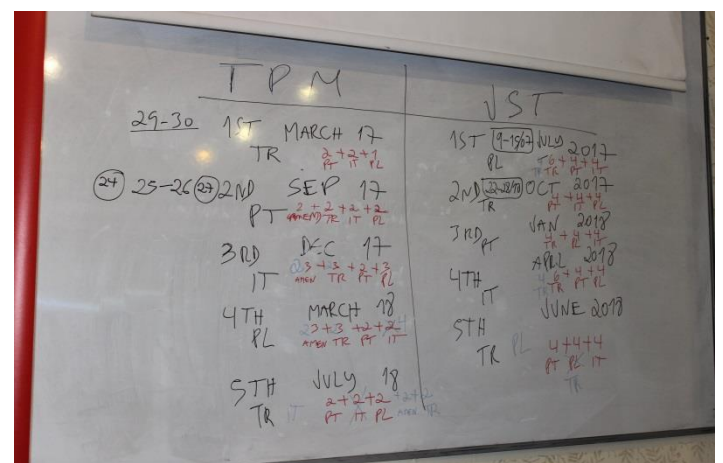 TPM
29-30 1ST MARCH 17
TR 2+2+1
PT IT PL
24 25-26 27 2ND SEP 17
PT 2+2+2+2
AMEND TR IT PL
3RD DEC 17
IT 3+3+2+3
AMEN TR PT PL
4TH MARCH 18
PL +3+2+2
AMEN TR PT IT
5TH JULY 18
TR IT 2+2+2 +2+2
PT IT PL AMEN TR
JST
1ST JULY 2017
PL 6+4+4
TR PT IT
2ND OCT 2017
TR 4+4+4
PT PL IT
3RD JAN 2018
PT 4+4+4
TR PL IT
4TH APRL 2018
IT 6+4+4
TR PT PL
5TH JUNE 2018
TR PL 4+4+4
PT PL IT
TR